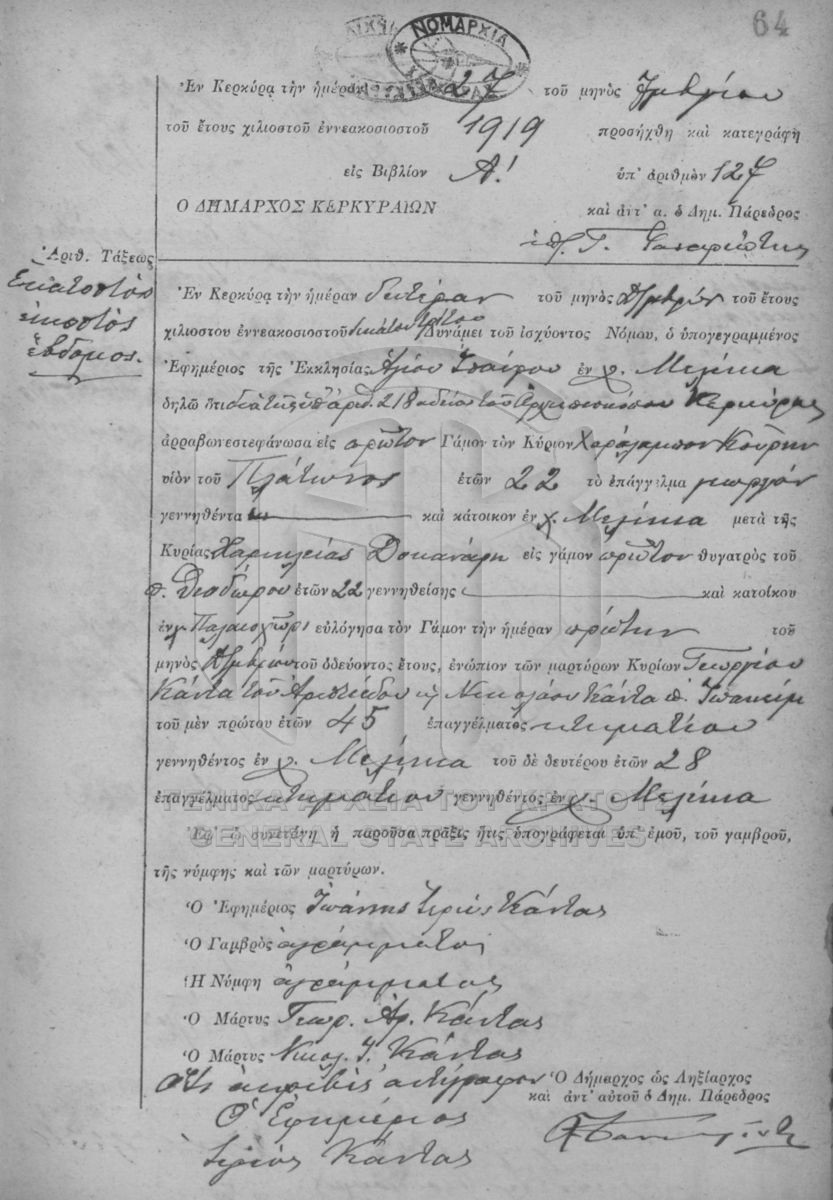 64
ΝΟΜΑΡΧΙΑ
Ἐν Κερκύρᾳ τὴν ἡμέραν 27 τοῦ μηνὸς
τοῦ ἔτους χιλιοστοῦ ἐννεακοσιοστοῦ 1919 προσήχθη καὶ κατεγράφη
εἰς Βιβλίον Α! ὑπ' ἀριθμὸν 127
Ο ΔΗΜΑΡΧΟΣ ΚΕΡΚΥΡΑΙΩΝ καὶ ἀντ' α. ὁ Δημ. Πάρεδρος
Ἀριθ. Τάξεως
Ἑκατοστὸς
εἰκοστὸς
ἕβδομος.
Ἐν Κερκύρᾳ τὴν ἡμέραν δευτέραν τοῦ μηνὸς τοῦ ἔτους
χιλιοστου ἐννεακοσιοστοῦ Δυνάμει τοῦ ἰσχύοντος Νόμου, ὁ ὑπογεγραμμένος
Ἐφημέριος τῆς Ἐκκλησίας Ἁγίου ἐν χ. Μελίκια
δηλῶ ὅτι διὰ τῆς ὑπ' ἀριθ. 218 ἀδείας τοῦ Ἀρχιεπισκόπου Κερκύρας
ἀρραβωνεστεφάνωσα εἰς πρῶτον Γάμον τὸν Κύριον Χαράλαμπον
υἱὸν τοῦ Πλάτωνος ἐτῶν 22 τὸ ἐπάγγελμα γεωργὸν
γεννηθέντα καὶ κάτοικον ἐν χ. Μελίκια μετὰ τῆς
Κυρίας Χαρικλείας Δουκανάρη εἰς γάμον πρῶτον θυγατρὸς τοῦ
π. Θεοδώρου ἐτῶν 22 γεννηθείσης καὶ κατοίκου
ἐν χ. Παλαιοχῶρι εὐλόγησα τὸν Γάμον τὴν ἡμέραν πρώτην τοῦ
μηνὸς τοῦ ὁδεύοντος ἔτους, ἐνώπιον τῶν μαρτύρων Κυρίων Γεωργίου
Κάντα τοῦ Ἀριστείδου κ Νικολάου Κάντα π. Ἰωακείμ
τοῦ μὲν πρώτου ἐτῶν 45 ἐπαγγέλματος κτηματίου
γεννηθέντος ἐν χ. Μελίκια τοῦ δὲ δευτέρου ἐτῶν 28
ἐπαγγέλματος κτηματίου γεννηθέντος ἐν χ. Μελίκια
ΓΕΝΙΚΑ ΑΡΧΕΙΑ ΤΟΥ ΚΡΑΤΟΥΣ
GENERAL STATE ARCHIVES
Ἐφ' ᾧ συνετάγη ἡ παροῦσα πρᾶξις ἥτις ὑπογράφεται ὑπ' ἐμοῦ, τοῦ γαμβροῦ,
τῆς νύμφης καὶ τῶν μαρτύρων.
Ὁ Ἐφημέριος Ἰωάννης Ἱερεὺς Κάντας
Ὁ Γαμβρὸς ἀγράμματος
Ἡ Νύμφη ἀγράμματος
Ὁ Μάρτυς Γεωρ. Ἀρ. Κάντας
Ὁ Μάρτυς Νικολ. Ἰ. Κάντας
Ὅτι ἀκριβὲς ἀντίγραφον
Ὁ Ἐφημέριος
Ἱερεὺς Κάντας
Ὁ Δήμαρχος ὡς Ληξίαρχος
καὶ ἀντ' αὐτοῦ ὁ Δημ. Πάρεδρος